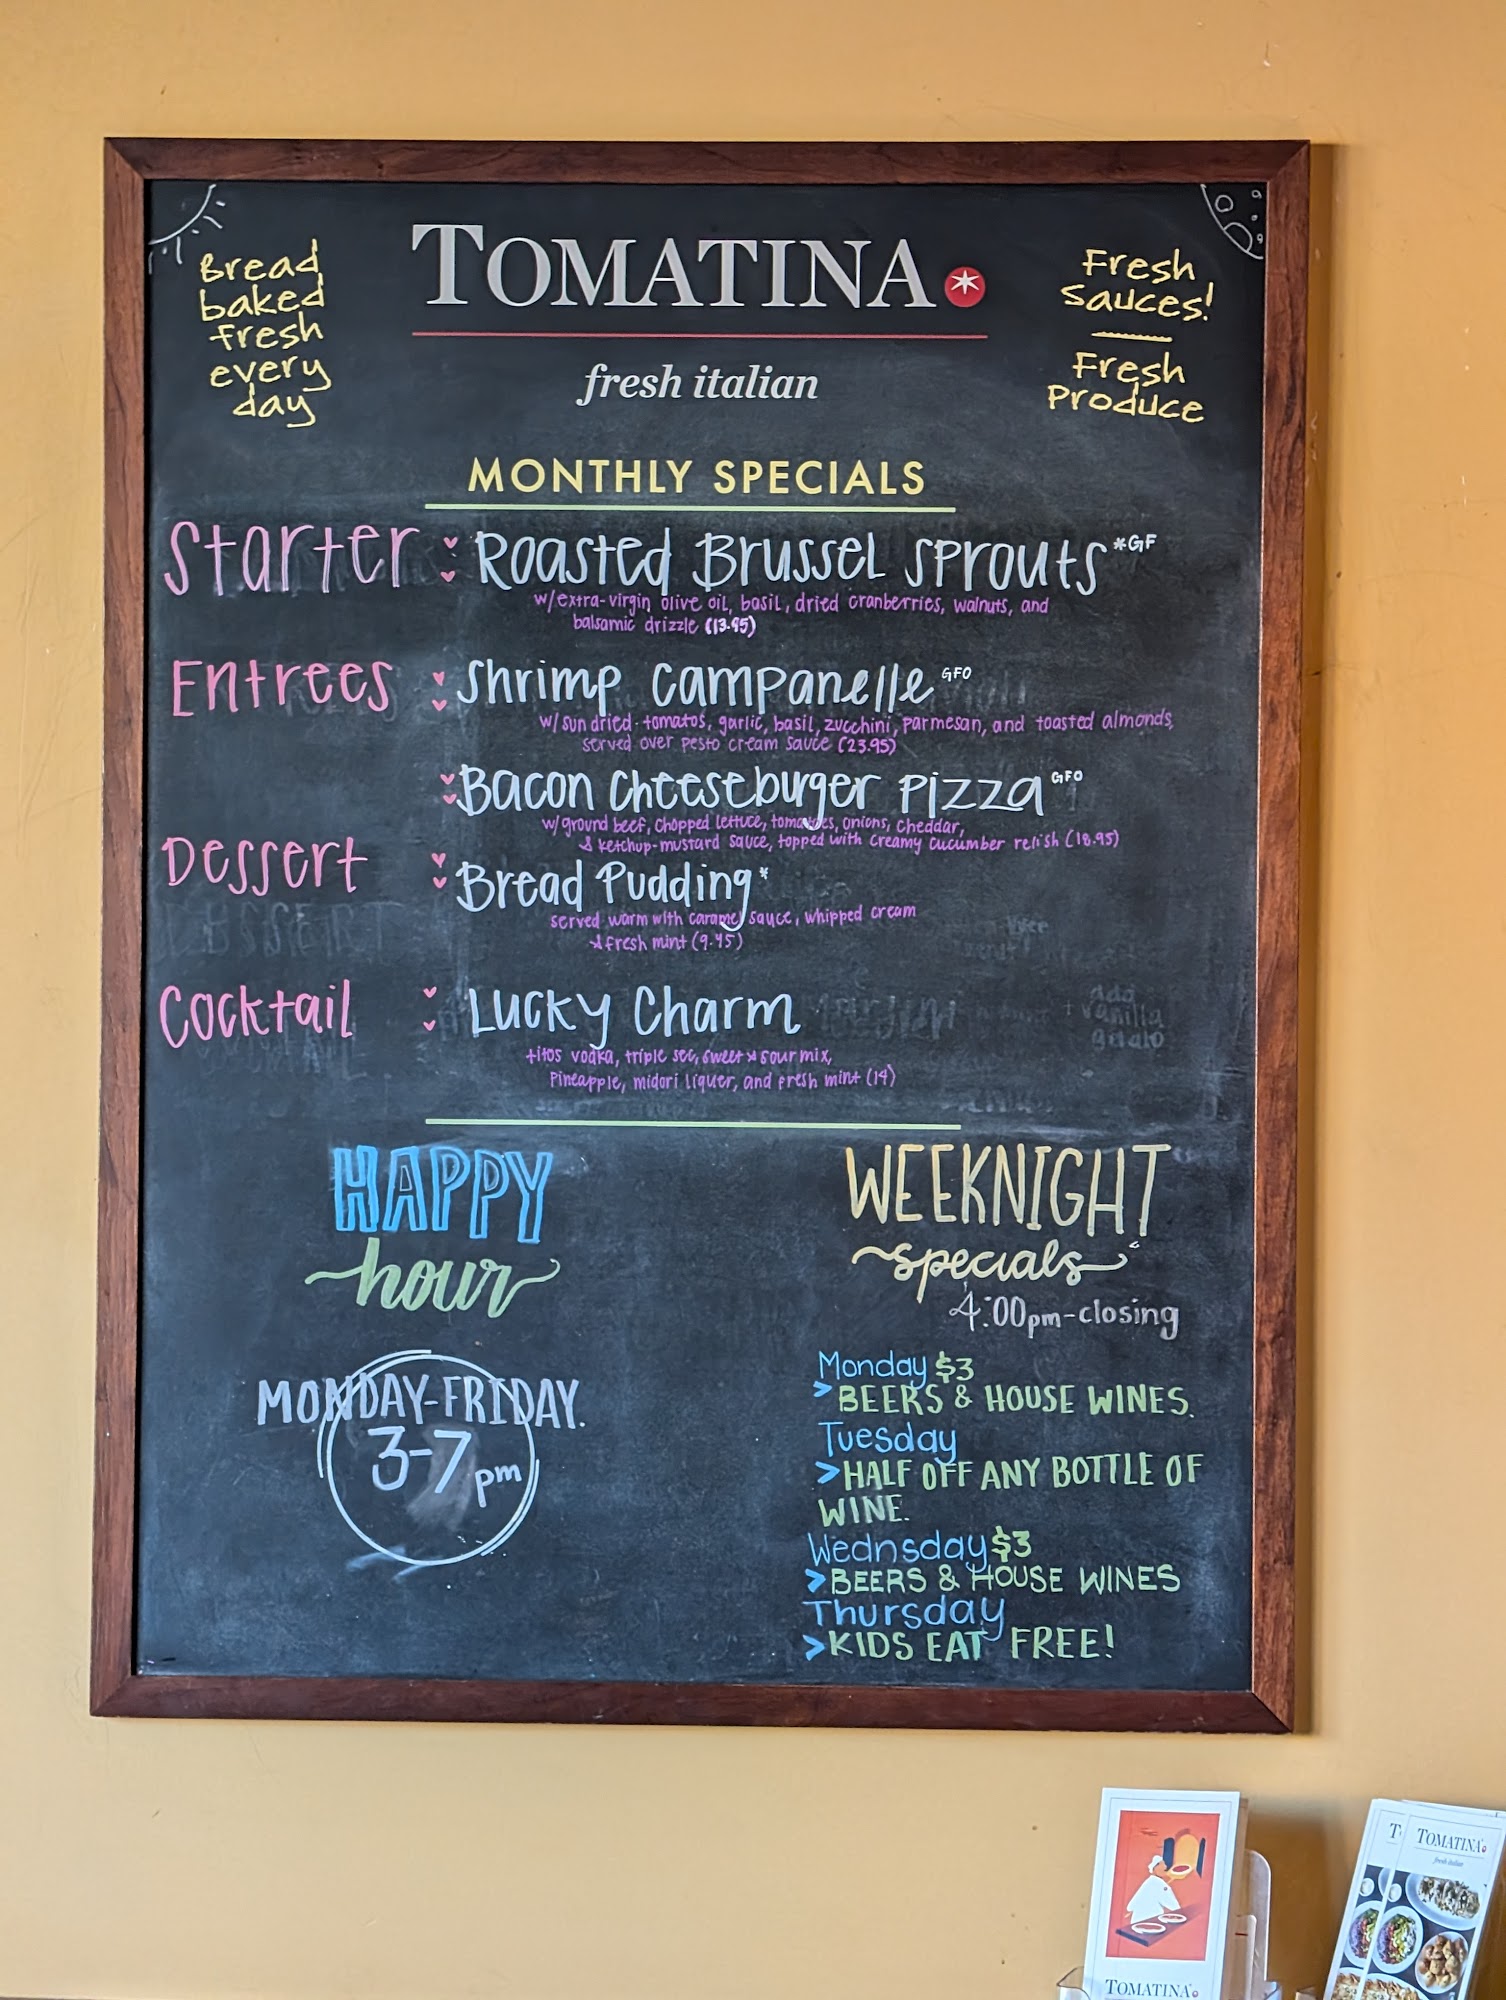 Bread
baked
fresh
every
day
TOMATINA
fresh italian
Fresh
Sauces!
Fresh
Produce
MONTHLY SPECIALS
Starter : Roasted Brussel Sprouts *GF
w/extra-virgin olive oil, basil, dried cranberries, walnuts, and
balsamic drizzle (13.95)
Entrees : Shrimp Campanelle GFO
w/sun dried-tomatos, garlic, basil, zucchini, parmesan, and toasted almonds,
served over pesto cream sauce (23.95)
: Bacon Cheeseburger Pizza GFO
w/ground beef, chopped lettuce, tomatoes, onions, cheddar,
& ketchup-mustard sauce, topped with creamy cucumber relish (18.95)
Dessert : Bread Pudding*
served warm with caramel sauce, whipped cream
& fresh mint (9.45)
Cocktail : Lucky Charm
titos vodka, triple sec, sweet & sour mix,
pineapple, midori liquer, and fresh mint (14)
DESSERT
add
+ vanilla
gelato
HAPPY
hour
MONDAY-FRIDAY.
3-7 pm
WEEKNIGHT
specials
4:00pm-closing
Monday $3
> BEERS & HOUSE WINES.
Tuesday
> HALF OFF ANY BOTTLE OF
WINE.
Wednsday $3
> BEERS & HOUSE WINES
Thursday
> KIDS EAT FREE!
TOMATINA
TOMATINA
fresh italian